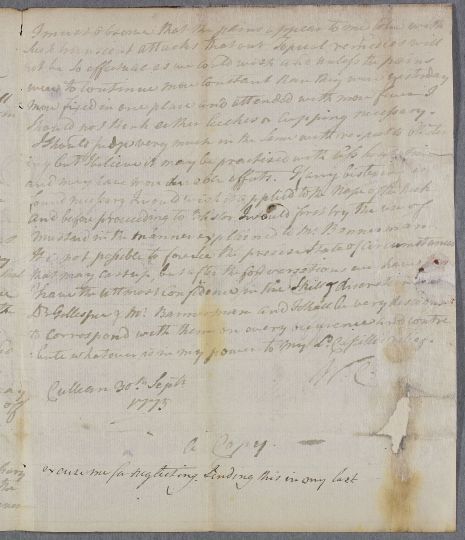 I must observe that the pains appear to me to be with
such transient attacks that our topical remedies will
not be so effectual as we could wish and unless the pains
were to continue more constant than they were yesterday
more fixed in one place and attended with more fever I
should not think either Leeches or Cupping necessary.
I should judge very much in the same with respect to blister
ing but I believe it may be practised with less
and may have more effects. If any blister is
found necessary I would wish it applied to the Nape of the Neck
and before proceeding to blister I would first try the use of
Mustard in the manner explained to Mr Bannerman.
It is not possible to foresee the precise State of Circumstances
that may cast up, but after the Conversations we have
have the utmost confidence in the Skill & discretion
Dr Gillespie & Mr Bannerman and I shall be very desirous
to correspond with them on every occurence and contri
bute whatever is in my power to my Ld
W. C.
Cullean 30th Septr
1775
a Copy
excuse me for neglecting Sending this in my last